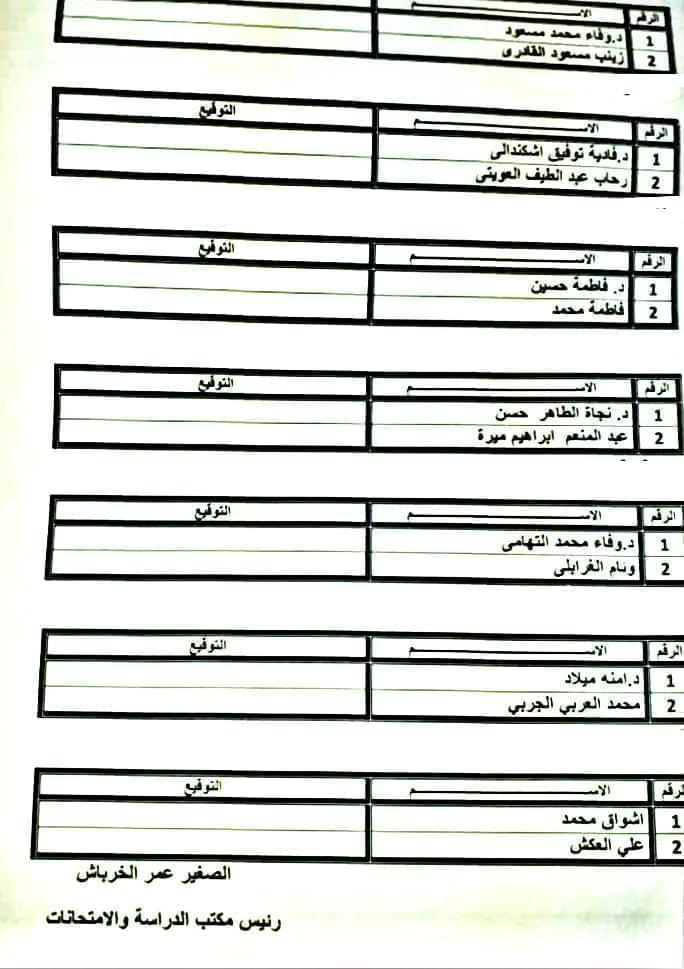 الرقم الاســـــــم
1 د.وفاء محمد مسعود
2 زينب مسعود القادرى
الرقم الاســـــــم التوقيع
1 د.فادية توفيق اشكندالى
2 رحاب عبد الطيف العويتى
الرقم الاســـــــم التوقيع
1 د. فاطمة حسين
2 فاطمة محمد
الرقم الاســـــــم التوقيع
1 د. نجاة الطاهر حسن
2 عبد المنعم ابراهيم ميرة
الرقم الاســـــــم التوقيع
1 د.وفاء محمد التهامى
2 ونام الغرابلى
الرقم الاســـــــم التوقيع
1 د.امنه ميلاد
2 محمد العربي الجربي
الرقم الاســـــــم التوقيع
1 اشواق محمد
2 علي العكش
الصغير عمر الخرباش
رئيس مكتب الدراسة والامتحانات